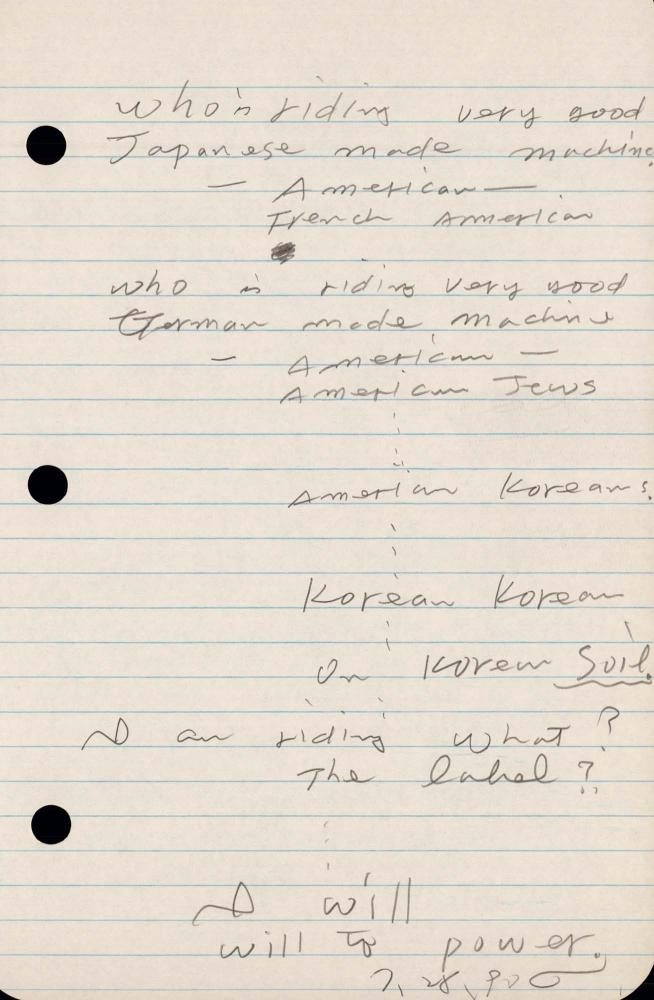 who is riding very good
Japanese made machine
— American —
French American
who is riding very good
German made machine
— American —
American Jews
American Koreans.
Korean Korean
on Korean Soil.
I am riding what?
The label?
I will
will to power.
7, 28, 90